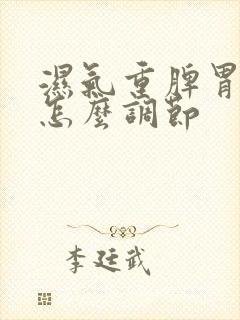 濕氣重脾胃
怎麼調節
李廷武